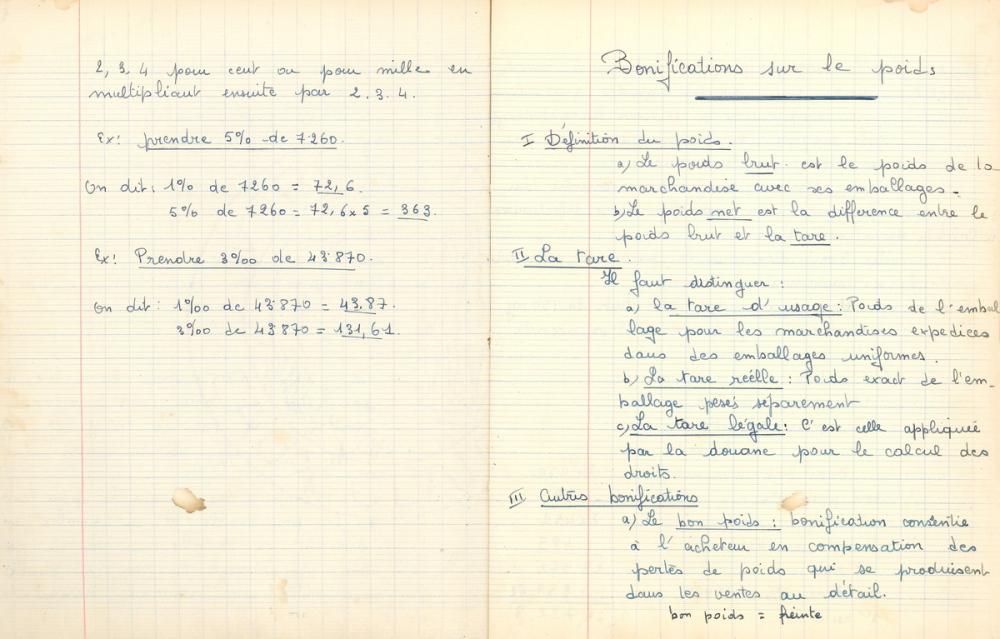 2, 3, 4 pour cent ou pour mille en
multipliant ensuite par 2. 3. 4.
Ex: prendre 5% de 7260.
On dit: 1% de 7260 = 72,6.
5% de 7260 = 72,6 x 5 = 363.
Ex: Prendre 3‰ de 43.870.
On dit: 1‰ de 43.870 = 43,87.
3‰ de 43870 = 131,61.
Bonifications sur le poids
I Définition du poids.
a) Le poids brut est le poids de la
marchandise avec ses emballages.
b) Le poids net est la difference entre le
poids brut et la tare.
II La tare.
Il faut distinguer :
a) la tare d'usage : Poids de l'embal
lage pour les marchandises expediées
dans des emballages uniformes.
b) La tare réélle : Poids exact de l'em-
ballage pesés séparement
c) La tare légale : C'est celle appliquée
par la douane pour le calcul des
droits.
III Autres bonifications
a) Le bon poids : bonification consentie
à l'acheteur en compensation des
pertes de poids qui se produisent
dans les ventes au détail.
bon poids = freinte